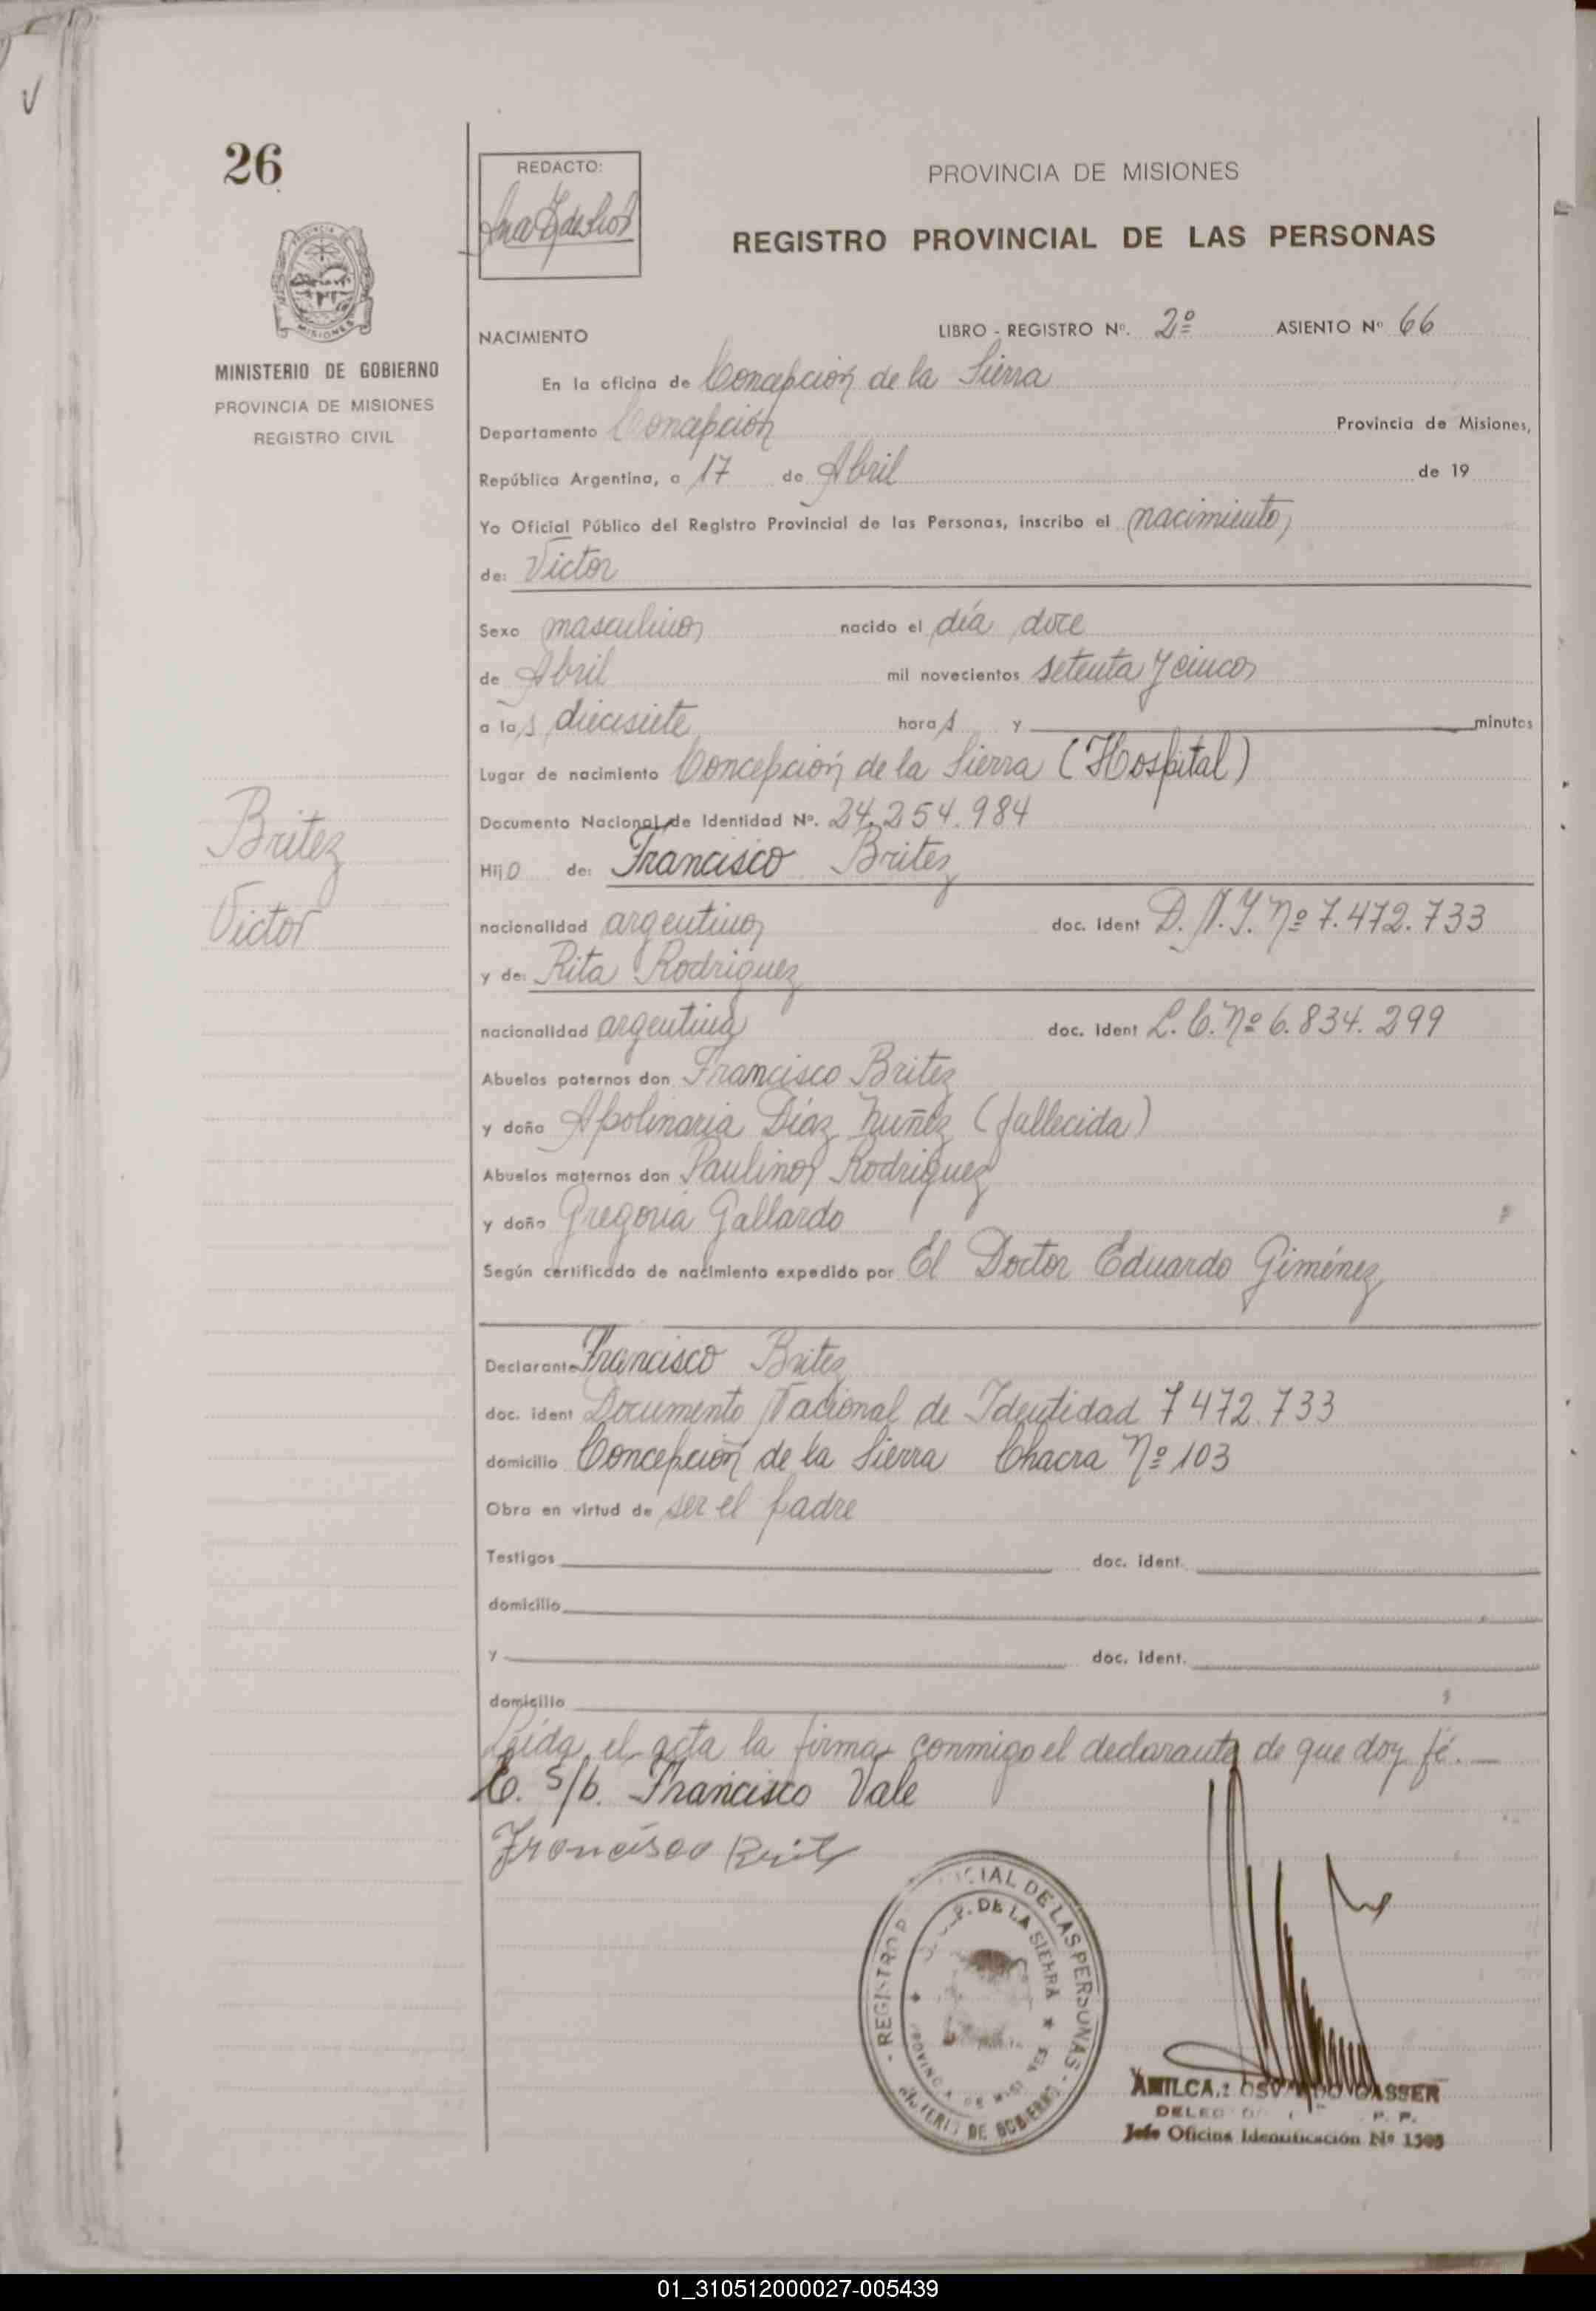 26
REDACTO:
PROVINCIA DE MISIONES
REGISTRO PROVINCIAL DE LAS PERSONAS
PROVINCIA DE
MISIONES
MINISTERIO DE GOBIERNO
PROVINCIA DE MISIONES
REGISTRO CIVIL
NACIMIENTO LIBRO - REGISTRO Nº. 2º ASIENTO Nº 66
En la oficina de Concepción de la Sierra
Departamento Concepción Provincia de Misiones,
República Argentina, a 17 de Abril de 19
Yo Oficial Público del Registro Provincial de las Personas, inscribo el nacimiento
de: Victor
Sexo masculino nacido el día doce
de Abril mil novecientos setenta y cinco
a las diecisiete horas y minutos
Lugar de nacimiento Concepción de la Sierra (Hospital)
Documento Nacional de Identidad Nº. 24.254.984
Britez
Victor
Hijo de: Francisco Britez
nacionalidad argentino doc. ident D.N.I. Nº 7.472.733
y de: Rita Rodriguez
nacionalidad argentina doc. ident L.C. Nº 6.834.299
Abuelos paternos don Francisco Britez
y doña Apolinaria Díaz Nuñez (fallecida)
Abuelos maternos don Paulino Rodriguez
y doña Gregoria Gallardo
Según certificado de nacimiento expedido por El Doctor Eduardo Giménez
Declarante Francisco Britez
doc. ident Documento Nacional de Identidad 7 472.733
domicilio Concepción de la Sierra Chacra Nº 103
Obra en virtud de ser el padre
Testigos doc. ident.
domicilio
y doc. ident.
domicilio
Leída el acta la firma conmigo el declarante de que doy fé.
E. S/b. Francisco Vale
Francisco Brit
- REGISTRO P CIAL DE LAS PERSONAS -
P. DE LA SIERRA
DE GOBIERNO
GASSER
Jefe Oficina Identificación Nº 1505
01_310512000027-005439